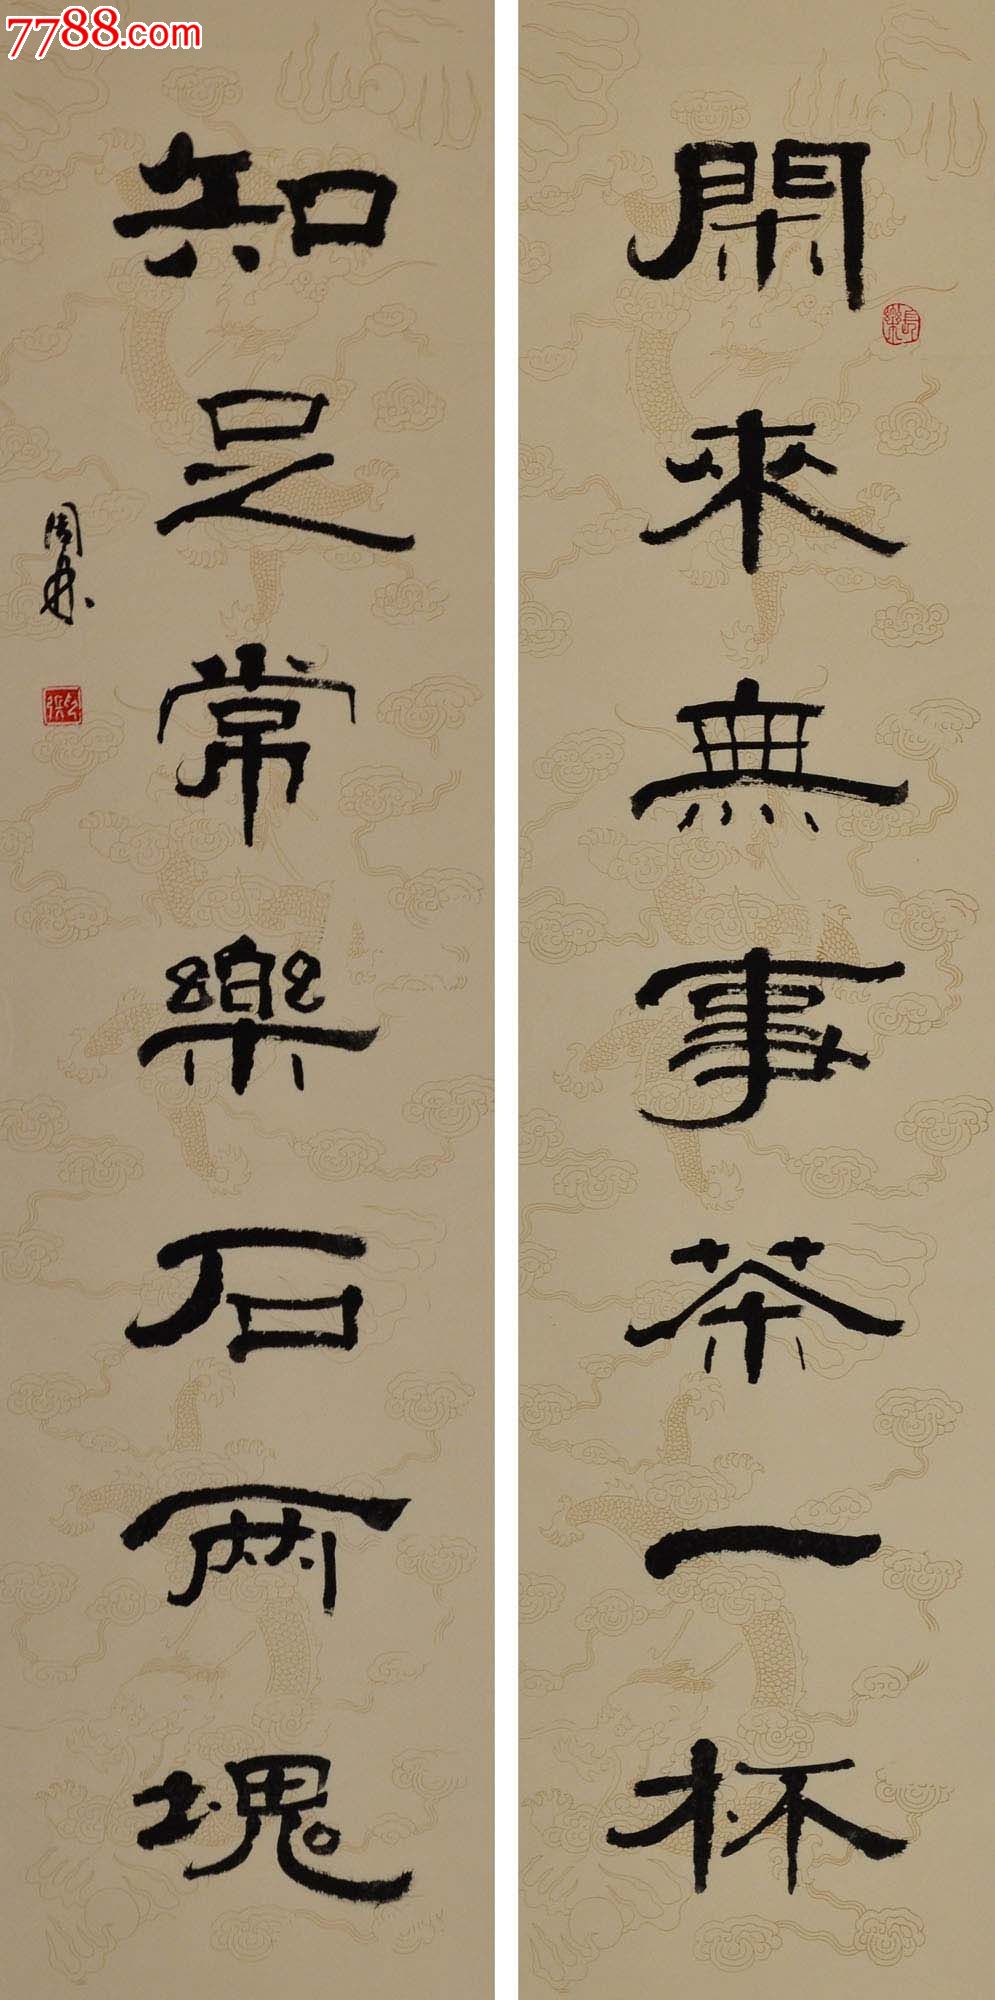 7788.com
閑來無事茶一杯
知足常樂石兩塊